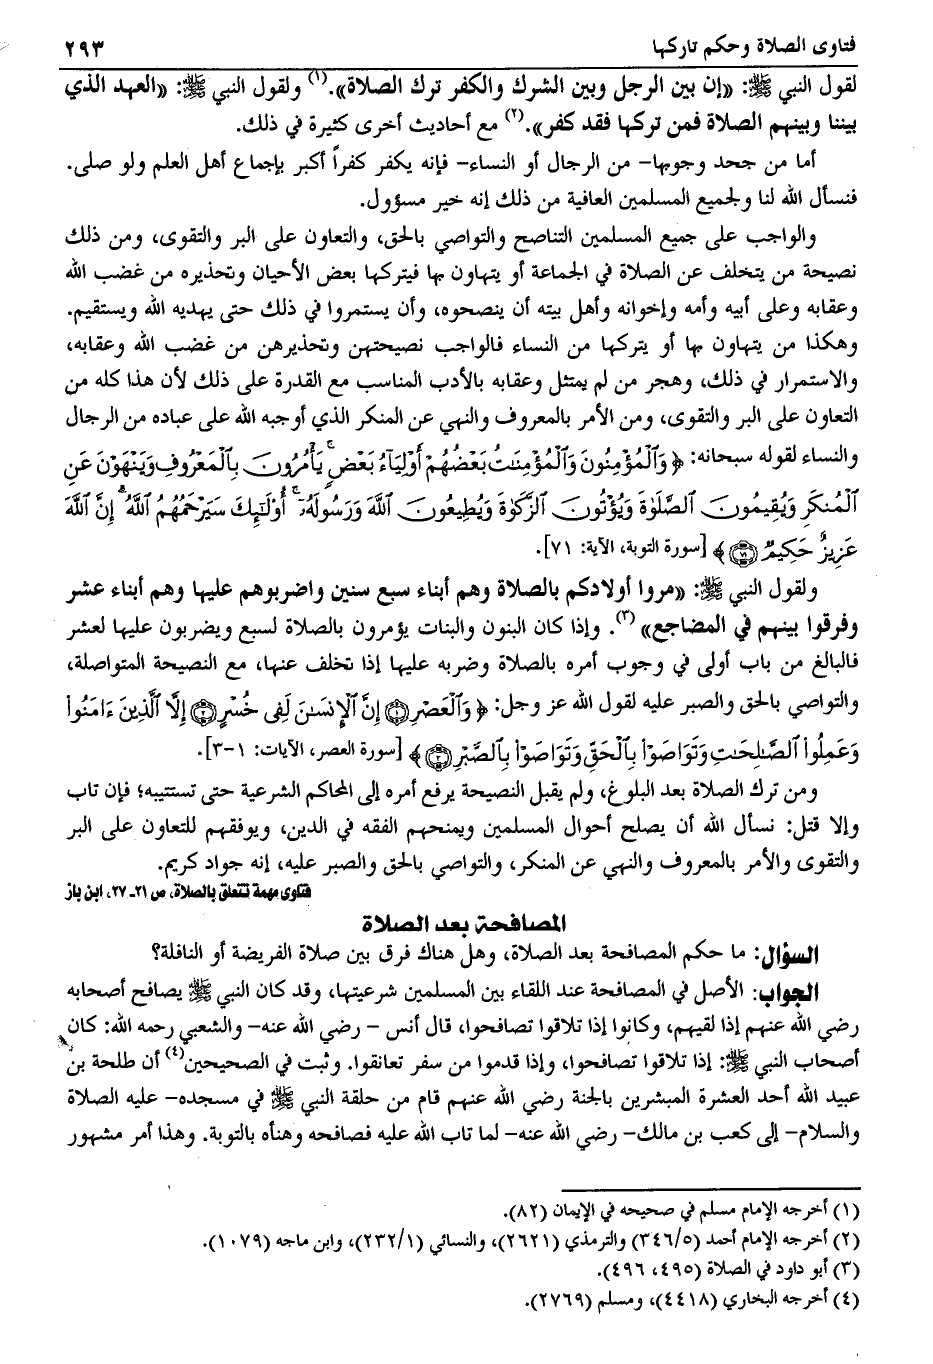 فتاوى الصلاة وحكم تاركها
٢٩٣
لقول النبي ﷺ: «إن بين الرجل وبين الشرك والكفر ترك الصلاة».(١) ولقول النبي ﷺ: «العهد الذي
بيننا وبينهم الصلاة فمن تركها فقد كفر».(٢) مع أحاديث أخرى كثيرة في ذلك.
أما من جحد وجوبها– من الرجال أو النساء– فإنه يكفر كفراً أكبر بإجماع أهل العلم ولو صلى.
فنسأل الله لنا ولجميع المسلمين العافية من ذلك إنه خير مسؤول.
والواجب على جميع المسلمين التناصح والتواصي بالحق، والتعاون على البر والتقوى، ومن ذلك
نصيحة من يتخلف عن الصلاة في الجماعة أو يتهاون بها فيتركها بعض الأحيان وتحذيره من غضب الله
وعقابه وعلى أبيه وأمه وإخوانه وأهل بيته أن ينصحوه، وأن يستمروا في ذلك حتى يهديه الله ويستقيم.
وهكذا من يتهاون بها أو يتركها من النساء فالواجب نصيحتهن وتحذيرهن من غضب الله وعقابه،
والاستمرار في ذلك، وهجر من لم يمتثل وعقابه بالأدب المناسب مع القدرة على ذلك لأن هذا كله من
التعاون على البر والتقوى، ومن الأمر بالمعروف والنهي عن المنكر الذي أوجبه الله على عباده من الرجال
والنساء لقوله سبحانه: ﴿ وَٱلْمُؤْمِنُونَ وَٱلْمُؤْمِنَٰتُ بَعْضُهُمْ أَوْلِيَآءُ بَعْضٍ ۚ يَأْمُرُونَ بِٱلْمَعْرُوفِ وَيَنْهَوْنَ عَنِ
ٱلْمُنكَرِ وَيُقِيمُونَ ٱلصَّلَوٰةَ وَيُؤْتُونَ ٱلزَّكَوٰةَ وَيُطِيعُونَ ٱللَّهَ وَرَسُولَهُۥٓ ۚ أُو۟لَٰٓئِكَ سَيَرْحَمُهُمُ ٱللَّهُ ۗ إِنَّ ٱللَّهَ
عَزِيزٌ حَكِيمٌ ٧١ ﴾ [سورة التوبة، الآية: ٧١].
ولقول النبي ﷺ: «مروا أولادكم بالصلاة وهم أبناء سبع سنين واضربوهم عليها وهم أبناء عشر
وفرقوا بينهم في المضاجع»(٣). وإذا كان البنون والبنات يؤمرون بالصلاة لسبع ويضربون عليها لعشر
فالبالغ من باب أولى في وجوب أمره بالصلاة وضربه عليها إذا تخلف عنها، مع النصيحة المتواصلة،
والتواصي بالحق والصبر عليه لقول الله عز وجل: ﴿ وَٱلْعَصْرِ ١ إِنَّ ٱلْإِنسَٰنَ لَفِى خُسْرٍ ٢ إِلَّا ٱلَّذِينَ ءَامَنُوا۟
وَعَمِلُوا۟ ٱلصَّٰلِحَٰتِ وَتَوَاصَوْا۟ بِٱلْحَقِّ وَتَوَاصَوْا۟ بِٱلصَّبْرِ ٣ ﴾ [سورة العصر، الآيات: ١-٣].
ومن ترك الصلاة بعد البلوغ، ولم يقبل النصيحة يرفع أمره إلى المحاكم الشرعية حتى تستتيبه؛ فإن تاب
وإلا قتل: نسأل الله أن يصلح أحوال المسلمين ويمنحهم الفقه في الدين، ويوفقهم للتعاون على البر
والتقوى والأمر بالمعروف والنهي عن المنكر، والتواصي بالحق والصبر عليه، إنه جواد كريم.
فتاوى مهمة تتعلق بالصلاة، ص ٢١ـ ٢٧، ابن باز
المصافحة بعد الصلاة
السؤال: ما حكم المصافحة بعد الصلاة، وهل هناك فرق بين صلاة الفريضة أو النافلة؟
الجواب: الأصل في المصافحة عند اللقاء بين المسلمين شرعيتها، وقد كان النبي ﷺ يصافح أصحابه
رضي الله عنهم إذا لقيهم، وكانوا إذا تلاقوا تصافحوا، قال أنس – رضي الله عنه– والشعبي رحمه الله: كان
أصحاب النبي ﷺ: إذا تلاقوا تصافحوا، وإذا قدموا من سفر تعانقوا. وثبت في الصحيحين(٤) أن طلحة بن
عبيد الله أحد العشرة المبشرين بالجنة رضي الله عنهم قام من حلقة النبي ﷺ في مسجده– عليه الصلاة
والسلام– إلى كعب بن مالك– رضي الله عنه– لما تاب الله عليه فصافحه وهنأه بالتوبة. وهذا أمر مشهور
(١) أخرجه الإمام مسلم في صحيحه في الإيمان (٨٢).
(٢) أخرجه الإمام أحمد (٣٤٦/٥) والترمذي (٢٦٢١)، والنسائي (٢٣٢/١)، وابن ماجه (١٠٧٩).
(٣) أبو داود في الصلاة (٤٩٥، ٤٩٦).
(٤) أخرجه البخاري (٤٤١٨)، ومسلم (٢٧٦٩).